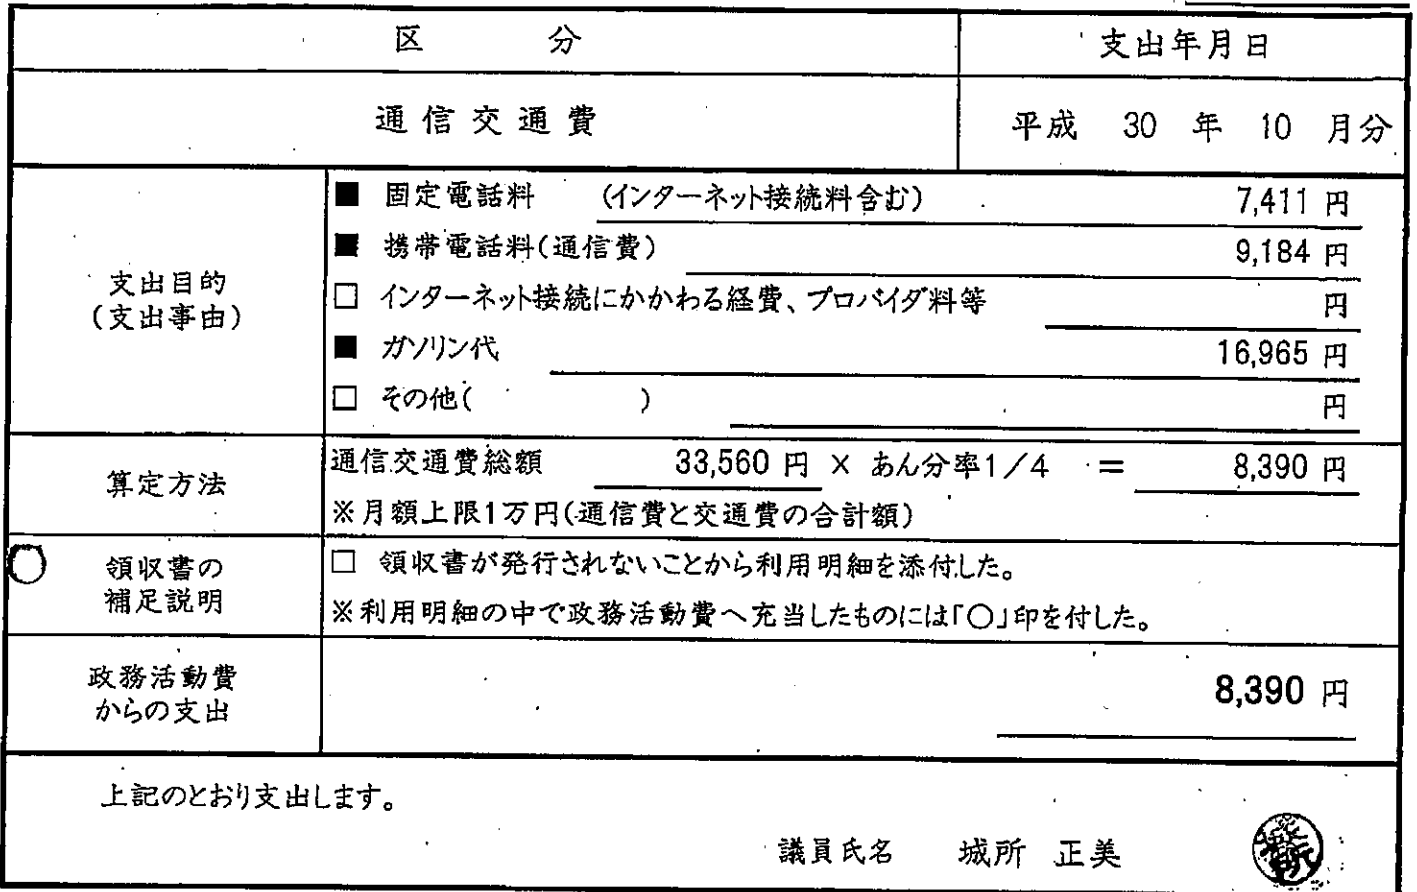 区 分 支出年月日
通信交通費 平成 30 年 10 月分
支出目的
(支出事由)
■ 固定電話料 (インターネット接続料含む) 7,411 円
■ 携帯電話料(通信費) 9,184 円
□ インターネット接続にかかわる経費、プロバイダ料等 円
■ ガソリン代 16,965 円
□ その他( ) 円
算定方法
通信交通費総額 33,560 円 × あん分率1/4 = 8,390 円
※月額上限1万円(通信費と交通費の合計額)
領収書の
補足説明
□ 領収書が発行されないことから利用明細を添付した。
※利用明細の中で政務活動費へ充当したものには「○」印を付した。
政務活動費
からの支出
8,390 円
上記のとおり支出します。
議員氏名 城所 正美